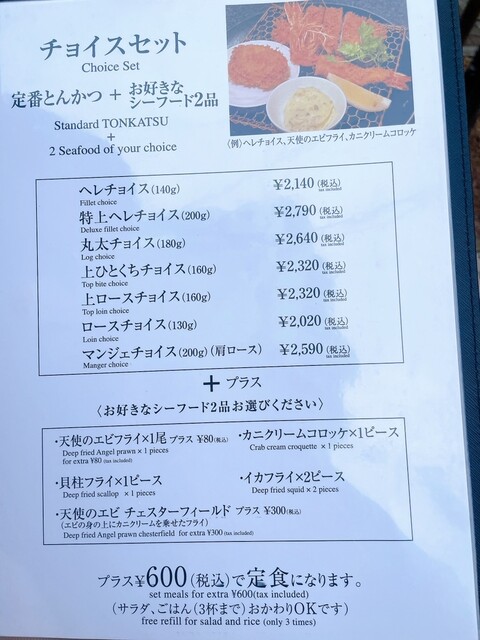 チョイスセット
Choice Set
定番とんかつ + お好きなシーフード2品
Standard TONKATSU
+
2 Seafood of your choice
〈例〉ヘレチョイス、天使のエビフライ、カニクリームコロッケ
ヘレチョイス(140g) ¥2,140(税込)
Fillet choice tax included
特上ヘレチョイス(200g) ¥2,790(税込)
Deluxe fillet choice tax included
丸太チョイス(180g) ¥2,640(税込)
Log choice tax included
上ひとくちチョイス(160g) ¥2,320(税込)
Top bite choice tax included
上ロースチョイス(160g) ¥2,320(税込)
Top loin choice tax included
ロースチョイス(130g) ¥2,020(税込)
Loin choice tax included
マンジェチョイス(200g)(肩ロース) ¥2,590(税込)
Manger choice tax included
+ プラス
〈お好きなシーフード2品お選びください〉
・天使のエビフライ×1尾 プラス ¥80(税込)
Deep fried Angel prawn × 1 pieces
for extra ¥80 (tax included)
・カニクリームコロッケ×1ピース
Crab cream croquette × 1 pieces
・貝柱フライ×1ピース
Deep fried scallop × 1 pieces
・イカフライ×2ピース
Deep fried squid × 2 pieces
・天使のエビ チェスターフィールド プラス ¥300(税込)
(エビの身の上にカニクリームを乗せたフライ)
Deep fried Angel prawn chesterfield for extra ¥300 (tax included)
プラス¥600(税込)で定食になります。
set meals for extra ¥600(tax included)
(サラダ、ごはん(3杯まで)おかわりOKです)
free refill for salad and rice (only 3 times)